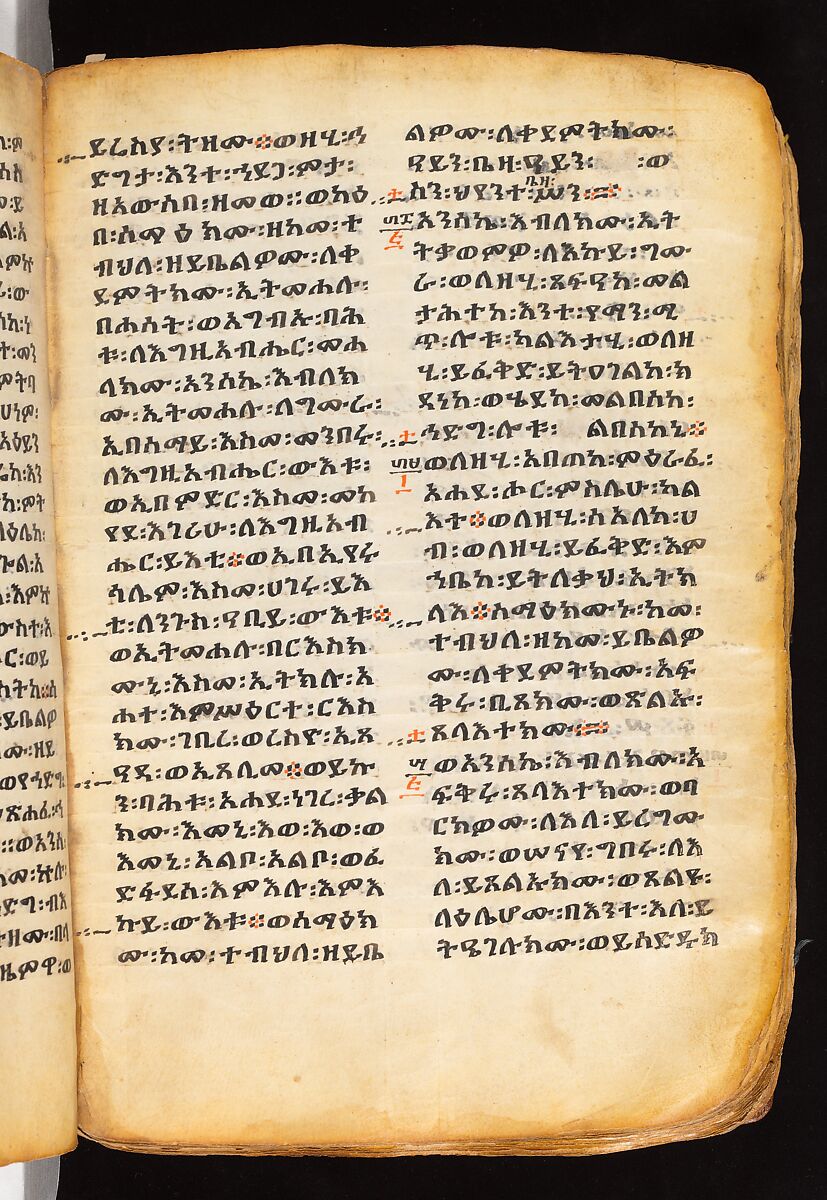 ይሬስያ፡ትዘሙ፡፡ወዘሂ፡ኀ
ድግታ፡እንተ፡ኀይጋ፡ምታ፡
ዘአውሰበ፡ዘመወ፡፡ወካዕ
በ፡ሰማዕክሙ፡ዘከመ፡ተ
ብህለ፡ዘይቤልዎሙ፡ለቀ
ይምትክሙ፡ኢትመሐሉ፡
በሐሰት፡ወአግብኡ፡ባሕ
ቱ፡ለእግዚአብሔር፡መሐ
ላክሙ፡አንሰኬ፡እብለክ
ሙ፡ኢትመሐሉ፡ለግሙራ፡
ኢበሰማይ፡እስመ፡መንበሩ፡
ለእግዚአብሔር፡ውእቱ፡
ወኢበምድር፡እስመ፡መከ
የደ፡እገሪሁ፡ለእግዚአብ
ሔር፡ይእቲ፡፡ወኢበኢየሩ
ሳሌም፡እስመ፡ሀገሩ፡ይእ
ቲ፡ለንጉስ፡ዓቢይ፡ውእቱ፡፡
ወኢትመሐሉ፡በርእስክ
ሙኒ፡እስመ፡ኢትክሉ፡አ
ሐተ፡እምሥዕርተ፡ርእስ
ክሙ፡ገቢረ፡ወረስዮ፡አጸ
ዓዳ፡ወኢጸሊመ፡፡ወይኩ
ን፡ባሕቱ፡አሐይ፡ነገረ፡ቃል
ክሙ፡እመኒ፡እወ፡እወ፡ወ
እመኒ፡አልቦ፡አልቦ፡ወፈ
ድፋደሰ፡እምእሉ፡እምእ
ኩይ፡ውእቱ፡፡ወሰማዕክ
ሙ፡ከመ፡ተብህለ፡ዘይቤ
ልዎሙ፡ለቀደምትክሙ፡
ዓይን፡ቤዛ፡ዓይን፡ ፡ወ
ስን፡ህየንተ፡ቤዛ፡ሥን፡፡
አንሰኬ፡እብለክሙ፡ኢት
ትቃወምዎ፡ለእኩይ፡ግሙ
ራ፡ወለዘሂ፡ጸፍዓከ፡መል
ታሕተከ፡እንተ፡የማን፡ሚ
ጥ፡ሎቱ፡ካልእታሂ፡ወለዘ
ሂ፡ይፈቅድ፡ይትዐገልከ፡ክ
ዳነከ፡ወሄይከ፡መልበሰከ፡
ኅድግ፡ሎቱ፡ ልበስከኒ፡፡
ወለዘሂ፡አበጠከ፡ምዕራፈ፡
አሐደ፡ሖር፡ምስሌሁ፡ካል
አተ፡፡ወለዘሂ፡ስአለከ፡ሀ
ብ፡ወለዘሂ፡ይፈቅድ፡እም
ኀቤከ፡ይትለቃህ፡ኢትክ
ላእ፡፡ሰማዕክሙኑ፡ከመ፡
ተብህለ፡ዘከመ፡ይቤልዎ
ሙ፡ለቀደምትክሙ፡አፍ
ቅሩ፡ቢጸክሙ፡ወጽልኡ፡
ጸላእተክሙ፡፡
ወአንሰኬ፡እብለክሙ፡አ
ፍቅሩ፡ጸላእተክሙ፡ወባ
ርክዎሙ፡ለእለ፡ይረግሙ
ክሙ፡ወሠናየ፡ግበሩ፡ለእ
ለ፡ይጸልኡክሙ፡ወጸልዩ፡
ላዕሌሆሙ፡በእንተ፡እለ፡ይ
ትዔገሉክሙ፡ወይሰድዱክ